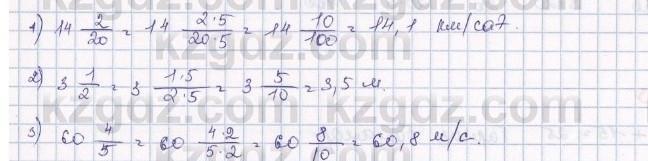 1) 14 2/20 = 14 2·5/20·5 = 14 10/100 = 14,1 км/сағ.
2) 3 1/2 = 3 1·5/2·5 = 3 5/10 = 3,5 м.
3) 60 4/5 = 60 4·2/5·2 = 60 8/10 = 60,8 м/с.
kzgdz.com